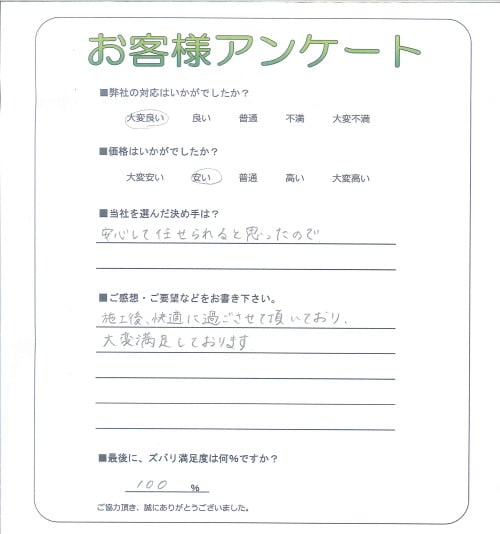 お客様アンケート
■弊社の対応はいかがでしたか？
大変良い 良い 普通 不満 大変不満
■価格はいかがでしたか？
大変安い 安い 普通 高い 大変高い
■当社を選んだ決め手は？
安心して任せられると思ったので
■ご感想・ご要望などをお書き下さい。
施工後、快適に過ごさせて頂いており、
大変満足しております
■最後に、ズバリ満足度は何%ですか？
100 %
ご協力頂き、誠にありがとうございました。